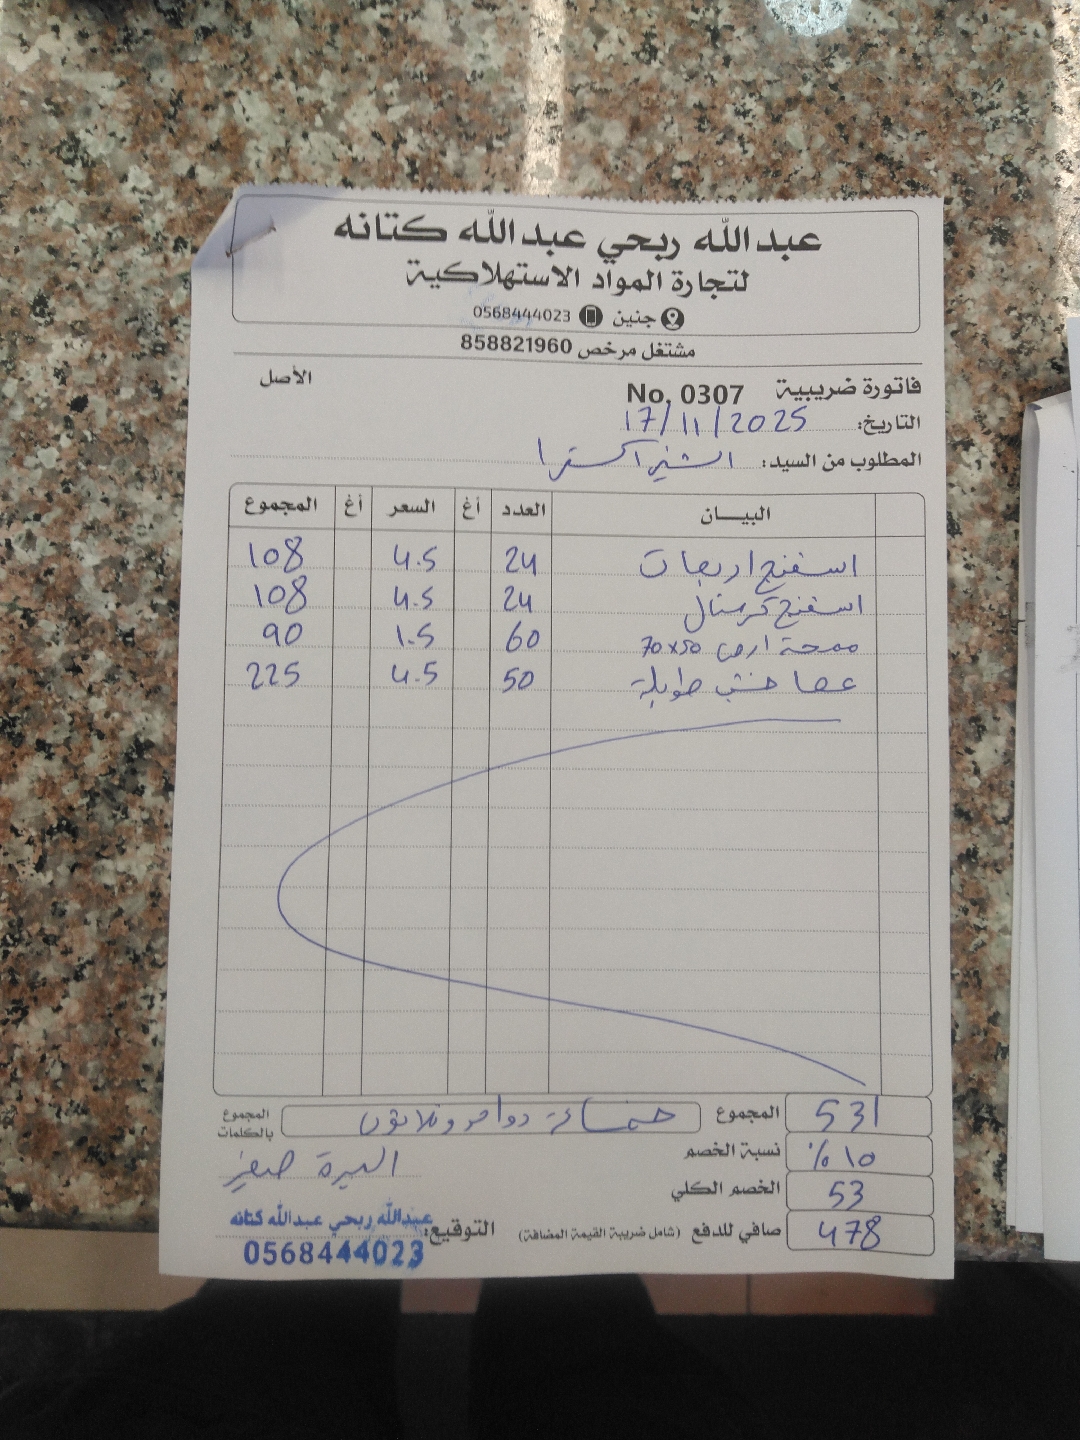 عبدالله ربحي عبدالله كتانه
لتجارة المواد الاستهلاكية
جنين 0568444023
مشتغل مرخص 858821960
فاتورة ضريبية No. 0307 الأصل
التاريخ: 17/11/2025
المطلوب من السيد: الشني اكسترا
البيـــان العدد أغ السعر أغ المجموع
اسفنج اربعات 24 4.5 108
اسفنج كرستال 24 4.5 108
ممسحة ارض 50x70 60 1.5 90
عصا خشب طويلة 50 4.5 225
المجموع 531
المجموع بالكلمات خمسمائة وواحد وثلاثون
نسبة الخصم 10%
الخصم الكلي 53
صافي للدفع (شامل ضريبة القيمة المضافة) 478
البيرة
التوقيع:
عبدالله ربحي عبدالله كتانه
0568444023